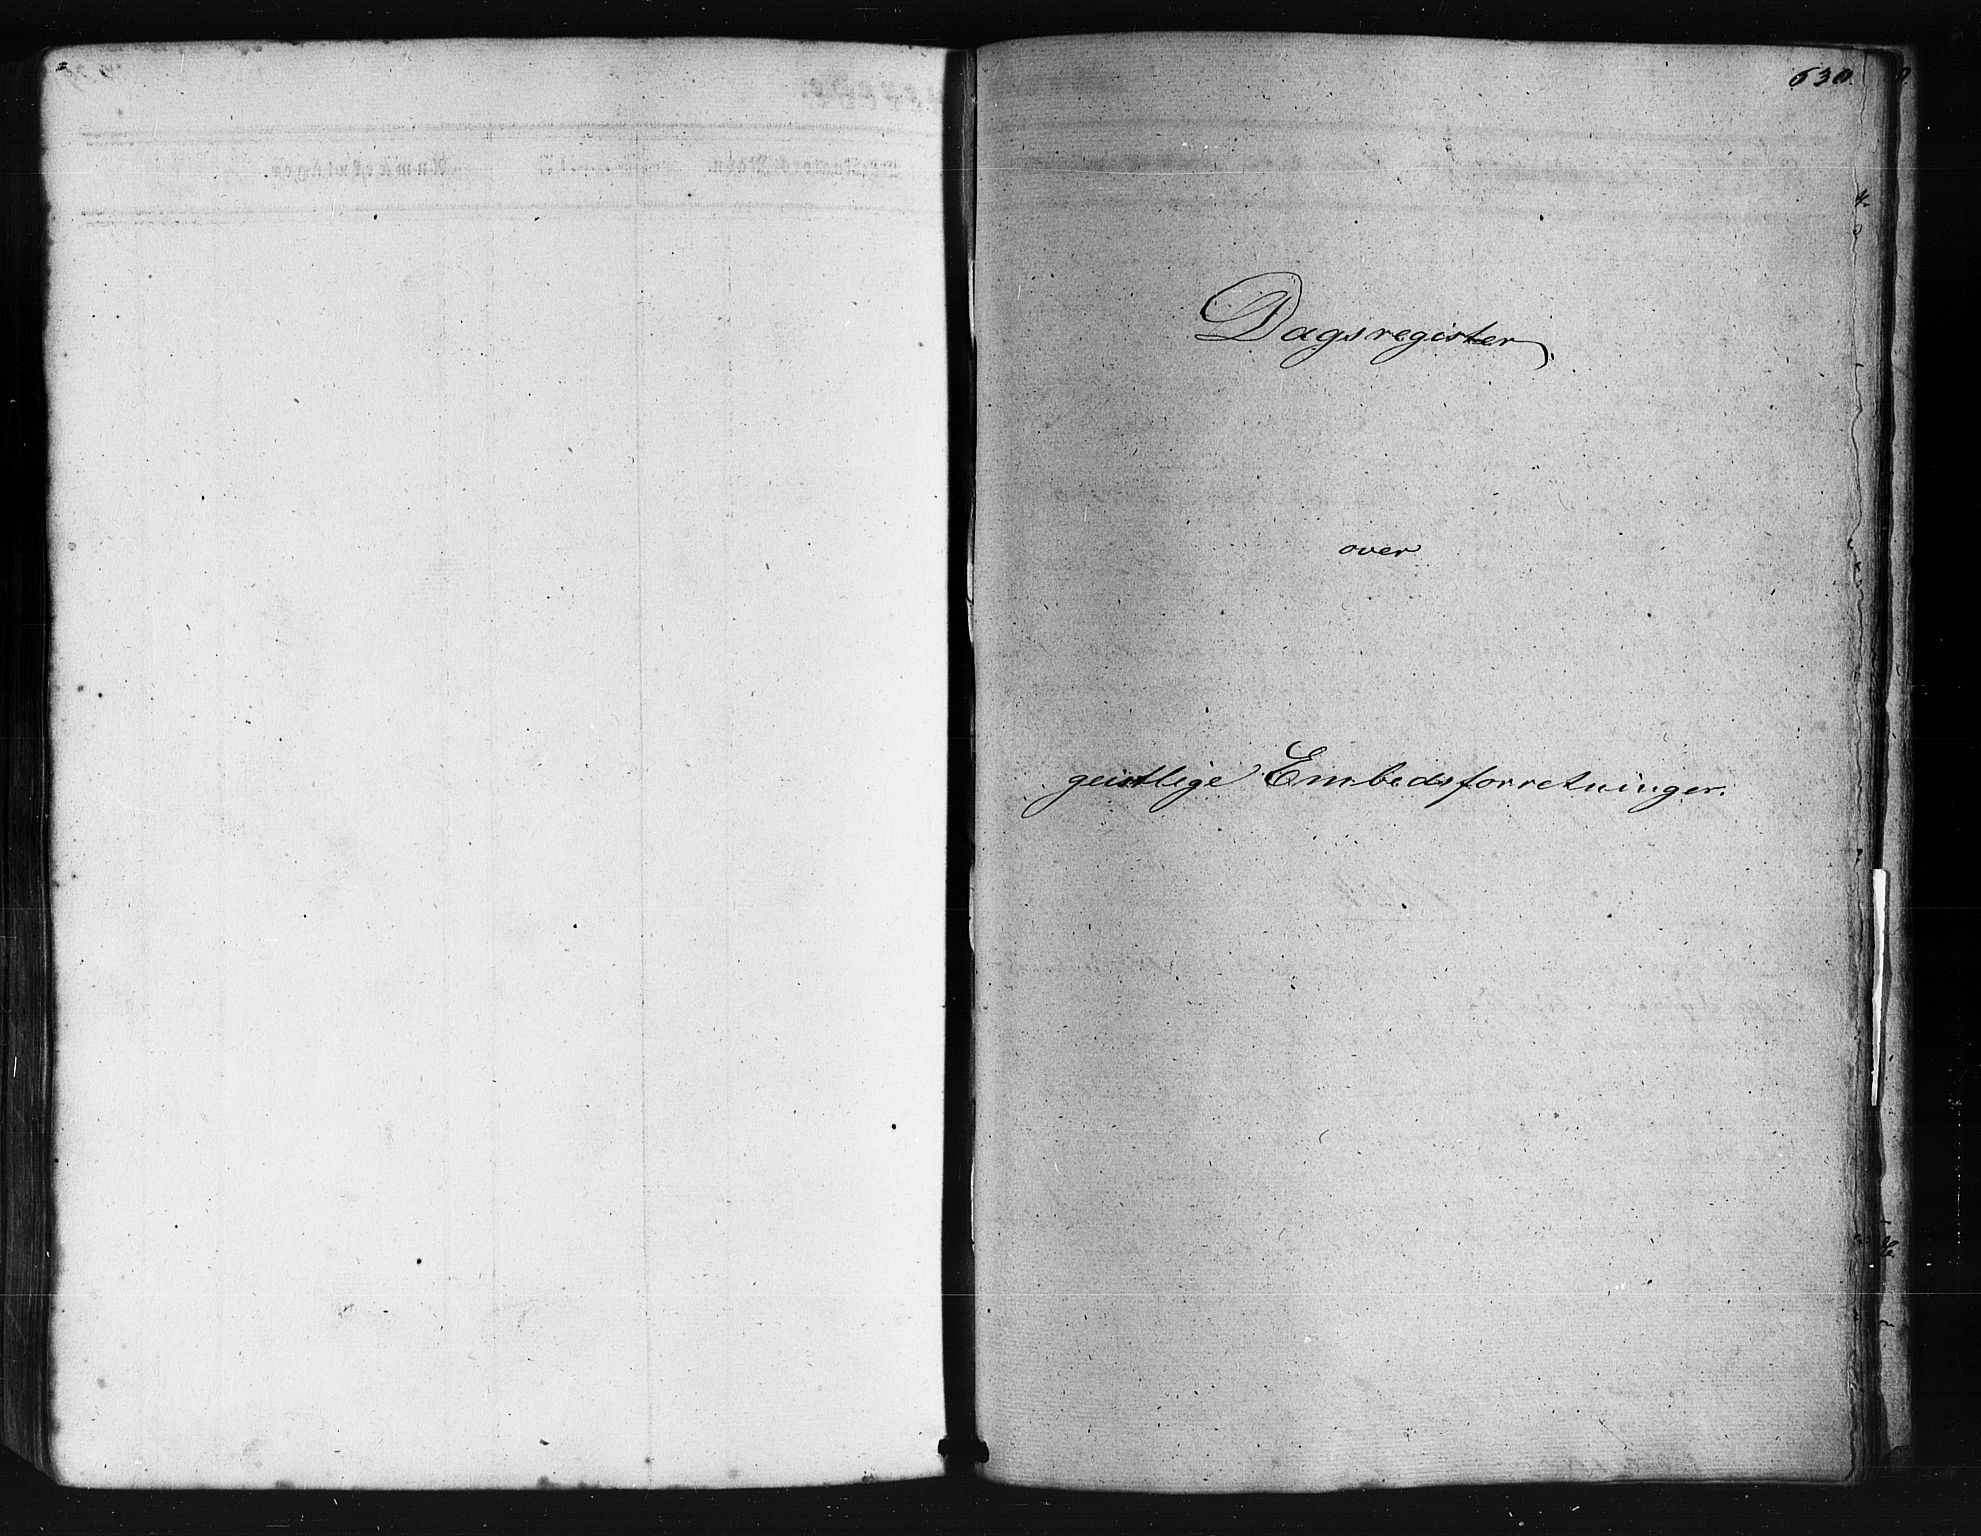 630.
Dagsregister
over
geistlige Embedsforretninger.